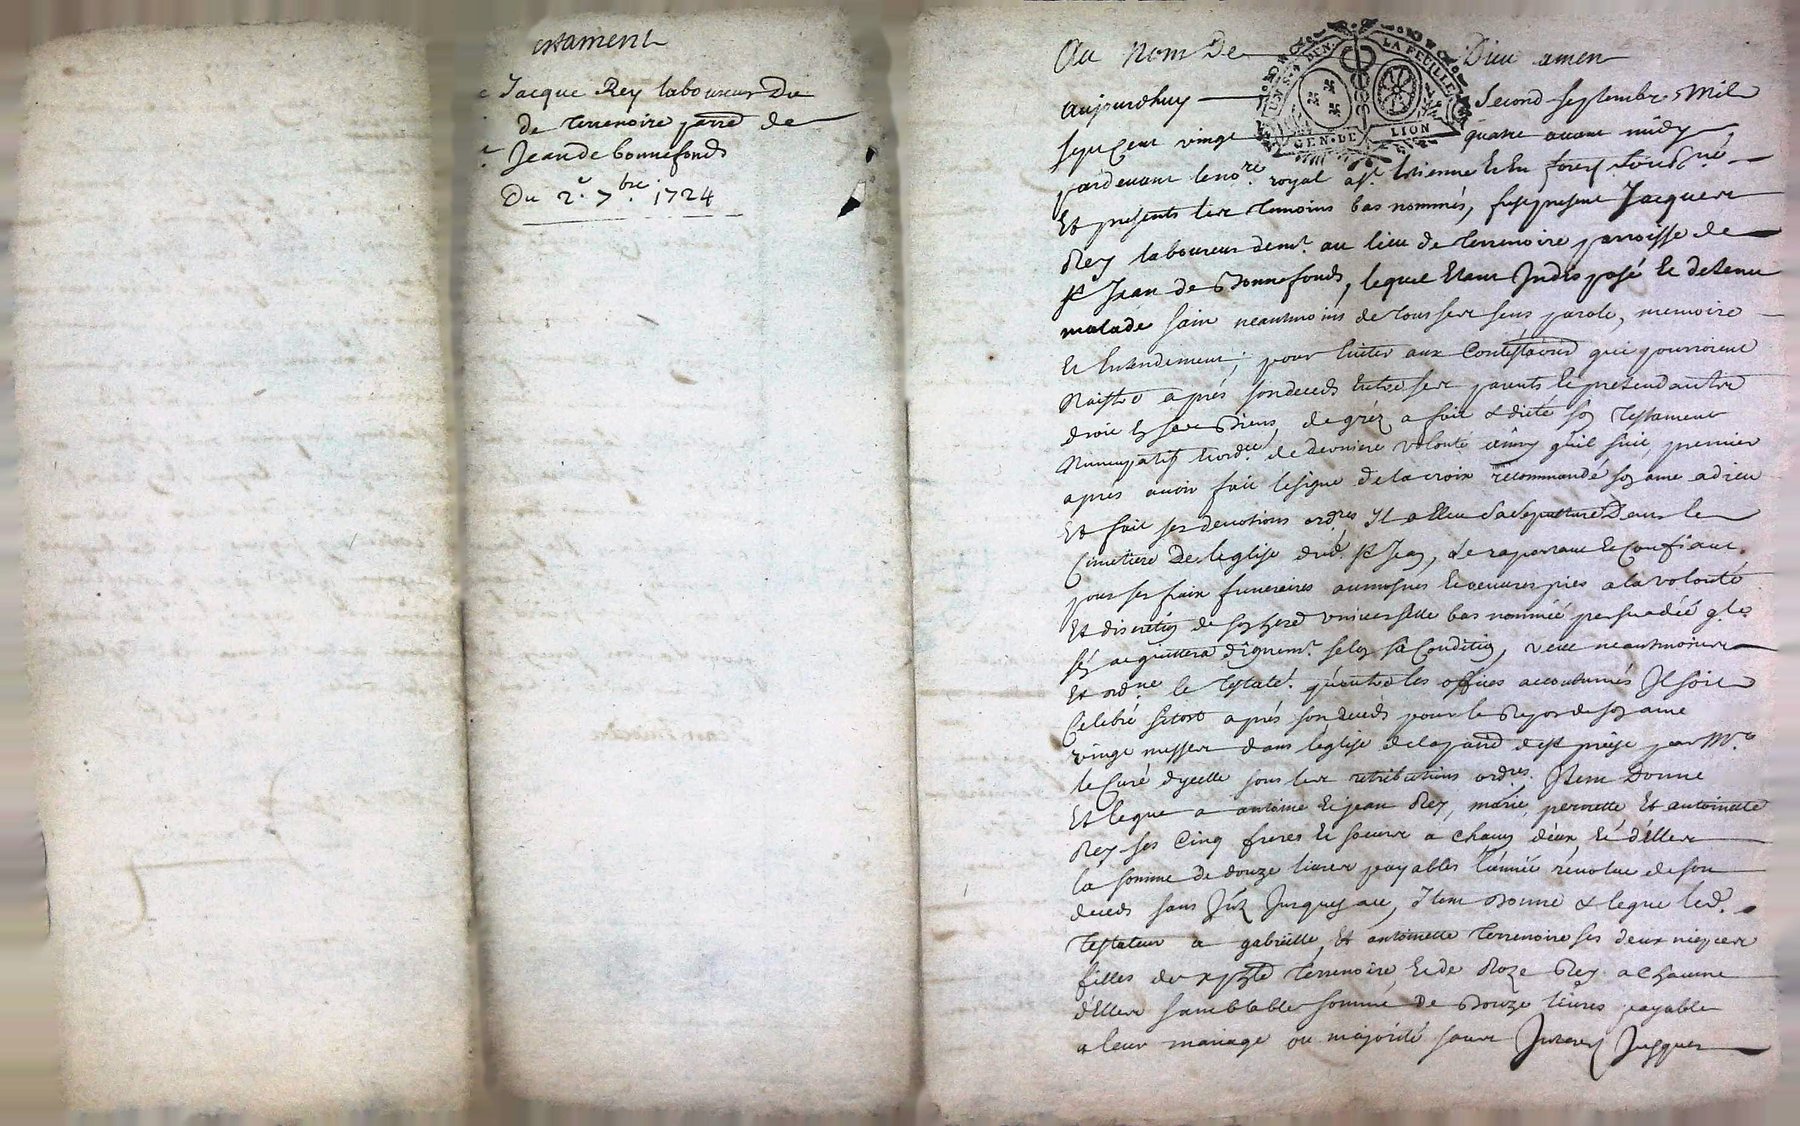 estament
Jacque Rey laboureur Du
de terrenoire parr.e de
Jean de bonnefonds
Du 2.e 7.bre 1724
Au Nom De Dieu amen
UN S. 4 DEN. LA FEUILLE
GEN. DE LION
Aujourdhuy Second septembre Mil
sept Cent vingt quatre avant midy
pardevant le no.re royal a st. Estienne En forest soubs.né
Et présents les temoins bas nommés, fust present Jacques
Rey laboureur dem.t au lieu de terrenoire parroisse de
st Jean de Bonnefonds, lequel Etant Indisposé Et detenu
malade sain neantmoins de tous ses sens parole, memoire
Et Entendement; pour Eviter aux Contestaons qui pourroient
Naistre aprés son deceds Entre ses parents Et pretendants
droit En ses Biens, de gréz a fait & dicté son testament
Nuncupatif de derniere volonté ainsy qu'il suit, premier
apres avoir fait le signe de la croix recommandé son ame a dieu
Et fait ses devotions ordres Il a Eleu sa sepulture Dans le
Cimetiere De l'eglise dud. st Jean, se raportant Et Confiant
pour ses fraix funeraires aumosnes Et oeuvres pies a la volonté
Et discretion de son hered universelle bas nommée persuadéé
s'en aquittera dignem.t selon sa Condition, veut neantmoins
Et ordne le testat.r qu'outre les offices accoutumés Il soit
Celebré sitost aprés son deceds pour le Repos de son ame
vingt messes dans l'eglise de la par. d. st par M.r
le Curé d'ycelle sous les retributions ordres. Item Donne
Et legue a antoine Et jean Rey, marie, pernette, Et antoinette
Rey ses Cinq freres Et soeurs a chacun d'eux Et d'Elles
la somme de douze livres payables l'année révolue de son
deceds sans Int Jusques au, Item Donne & legue led.
testateur a gabrielle, Et antoinette terrenoire ses deux niepces
filles de terrenoire Et de Roze Rey a chacune
d'Elles semblable somme De Douze livres payable
a leur mariage ou majorité sans Interest Jusques